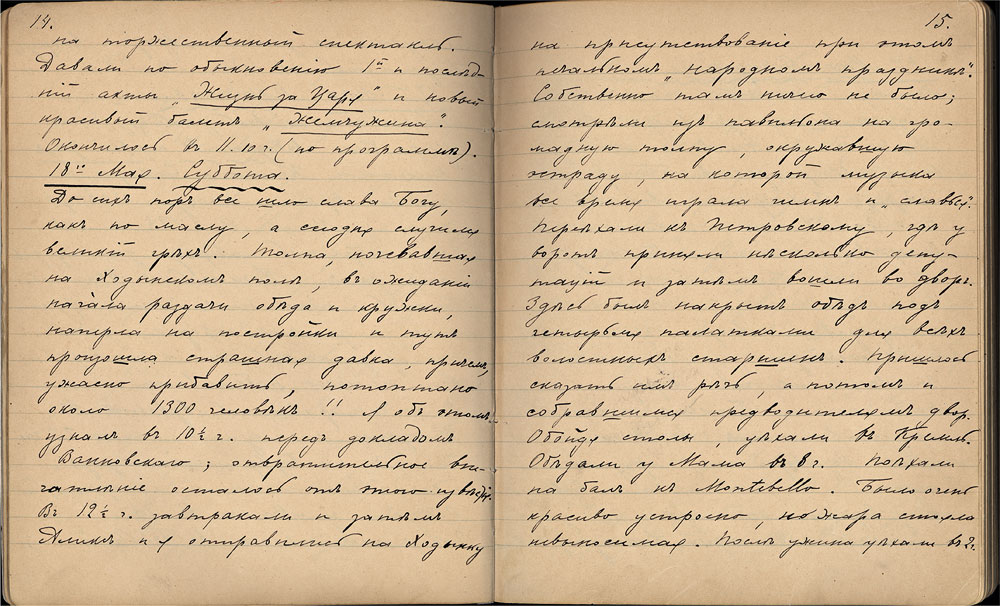 14.
на торжественный спектакль.
Давали по обыкновенію 1й и послѣд-
ній акты „Жизнь за Царя" и новый
красивый балетъ „Жемчужина".
Окончилось къ 11.10 г. (по программѣ).
18го Мая. Суббота.
До сихъ поръ все шло слава Богу,
какъ по маслу, а сегодня случился
великій грѣхъ. Толпа, ночевавшая
на Ходынскомъ полѣ, въ ожиданіи
начала раздачи обѣда и кружки,
наперла на постройки и тутъ
произошла страшная давка, причемъ,
ужасно прибавить, потоптано
около 1300 человѣкъ!! Я объ этомъ
узналъ въ 10½ ч. передъ докладомъ
Ванновскаго; отвратительное впе-
чатлѣніе осталось отъ этого извѣстія.
Въ 12½ ч. завтракали и затѣмъ
Аликсъ и я отправились на Ходынку
15.
на присутствованіе при этомъ
печальномъ „народномъ праздникѣ".
Собственно тамъ ничего не было;
смотрѣли изъ павильона на гро-
мадную толпу, окружавшую
эстраду, на которой музыка
все время играла гимнъ и „славься".
Переѣхали къ Петровскому, гдѣ у
воротъ приняли нѣсколько депу-
тацій и затѣмъ вошли во дворъ.
Здѣсь былъ накрытъ обѣдъ подъ
четырьмя палатками для всѣхъ
волостныхъ старшинъ. Пришлось
сказать имъ рѣчь, а потомъ и
собравшимся предводителямъ двор.
Обойдя столы, уѣхали въ Кремль.
Обѣдали у Мама въ 8 ч. Поѣхали
на балъ къ Montebello. Было очень
красиво устроено, но жара стояла
невыносимая. Послѣ ужина уѣхали въ 2 ч.